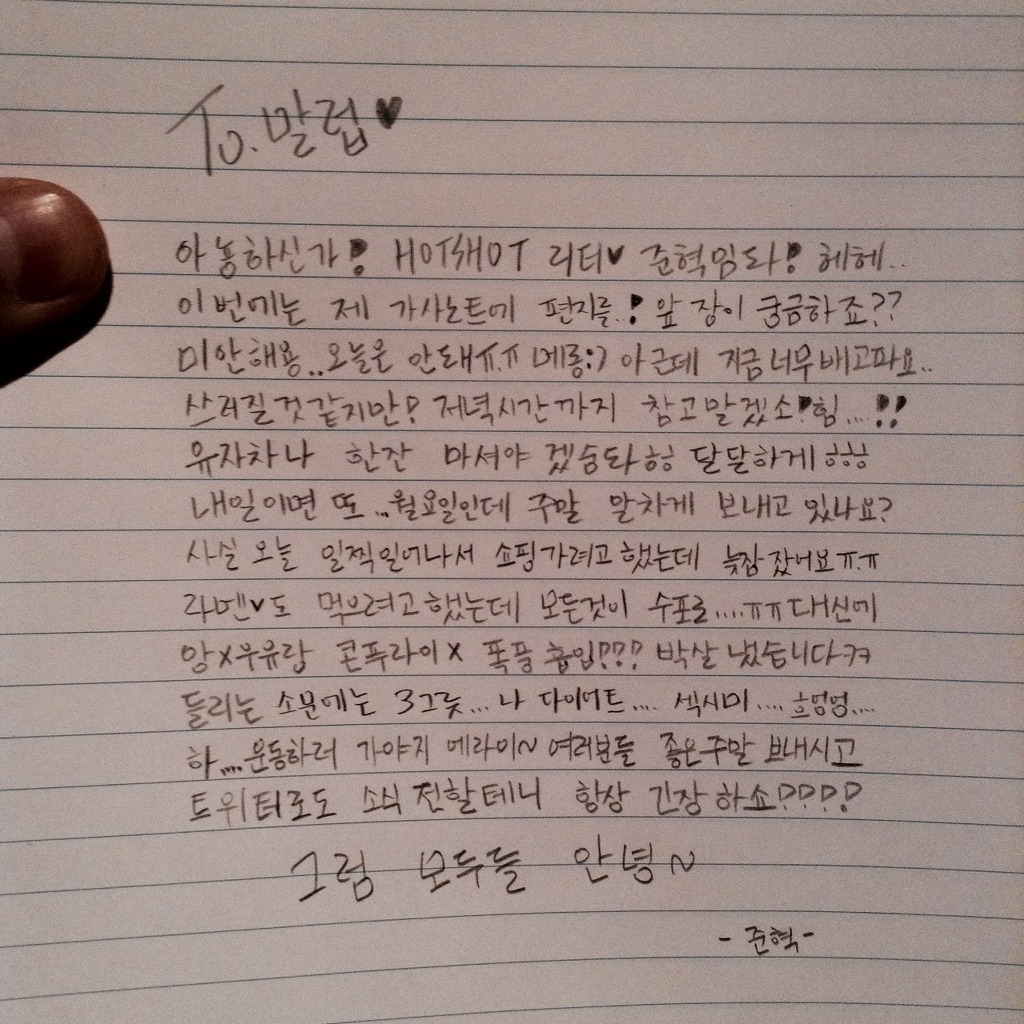 To.말럽♥
아뇽하신가! HOTSHOT 리더♥ 준혁임돠! 헤헤..
이번에는 제 가사노트에 편지를..! 앞 장이 궁금하죠??
미안해용.. 오늘은 안돼ㅠ.ㅠ 메롱:7 아 근데 지금 너무 배고파요..
쓰러질것 같지만! 저녁시간까지 참고말겠소! 힘...!!
유자차나 한잔 마셔야 겠슴돠ㅎㅎ 달달하게 ㅎㅎㅎ
내일이면 또...월요일인데 주말 알차게 보내고 있나요?
사실 오늘 일찍일어나서 쇼핑가려고했는데 늦잠 잤어요ㅠ.ㅠ
라멘♥도 먹으려고했는데 모든것이 수포로....ㅠㅠ 대신에
앙x우유랑 콘푸라이x 폭풍 흡입!!! 박살 냈습니다ㅋㅋ
들리는 소문에는 3그릇... 나 다이어트.... 섹시미.... 흐엉엉....
하....운동하러 가야지 에라이~ 여러분들 좋은주말 보내시고
트위터로도 소식 전할테니 항상 긴장 하쇼!!!!
그럼 모두들 안녕~
- 준혁 -